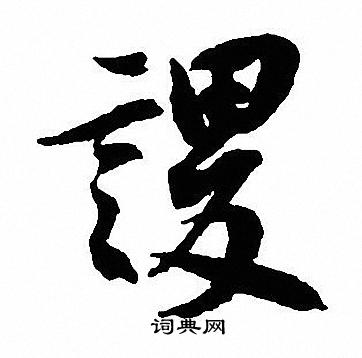 謖
词典网